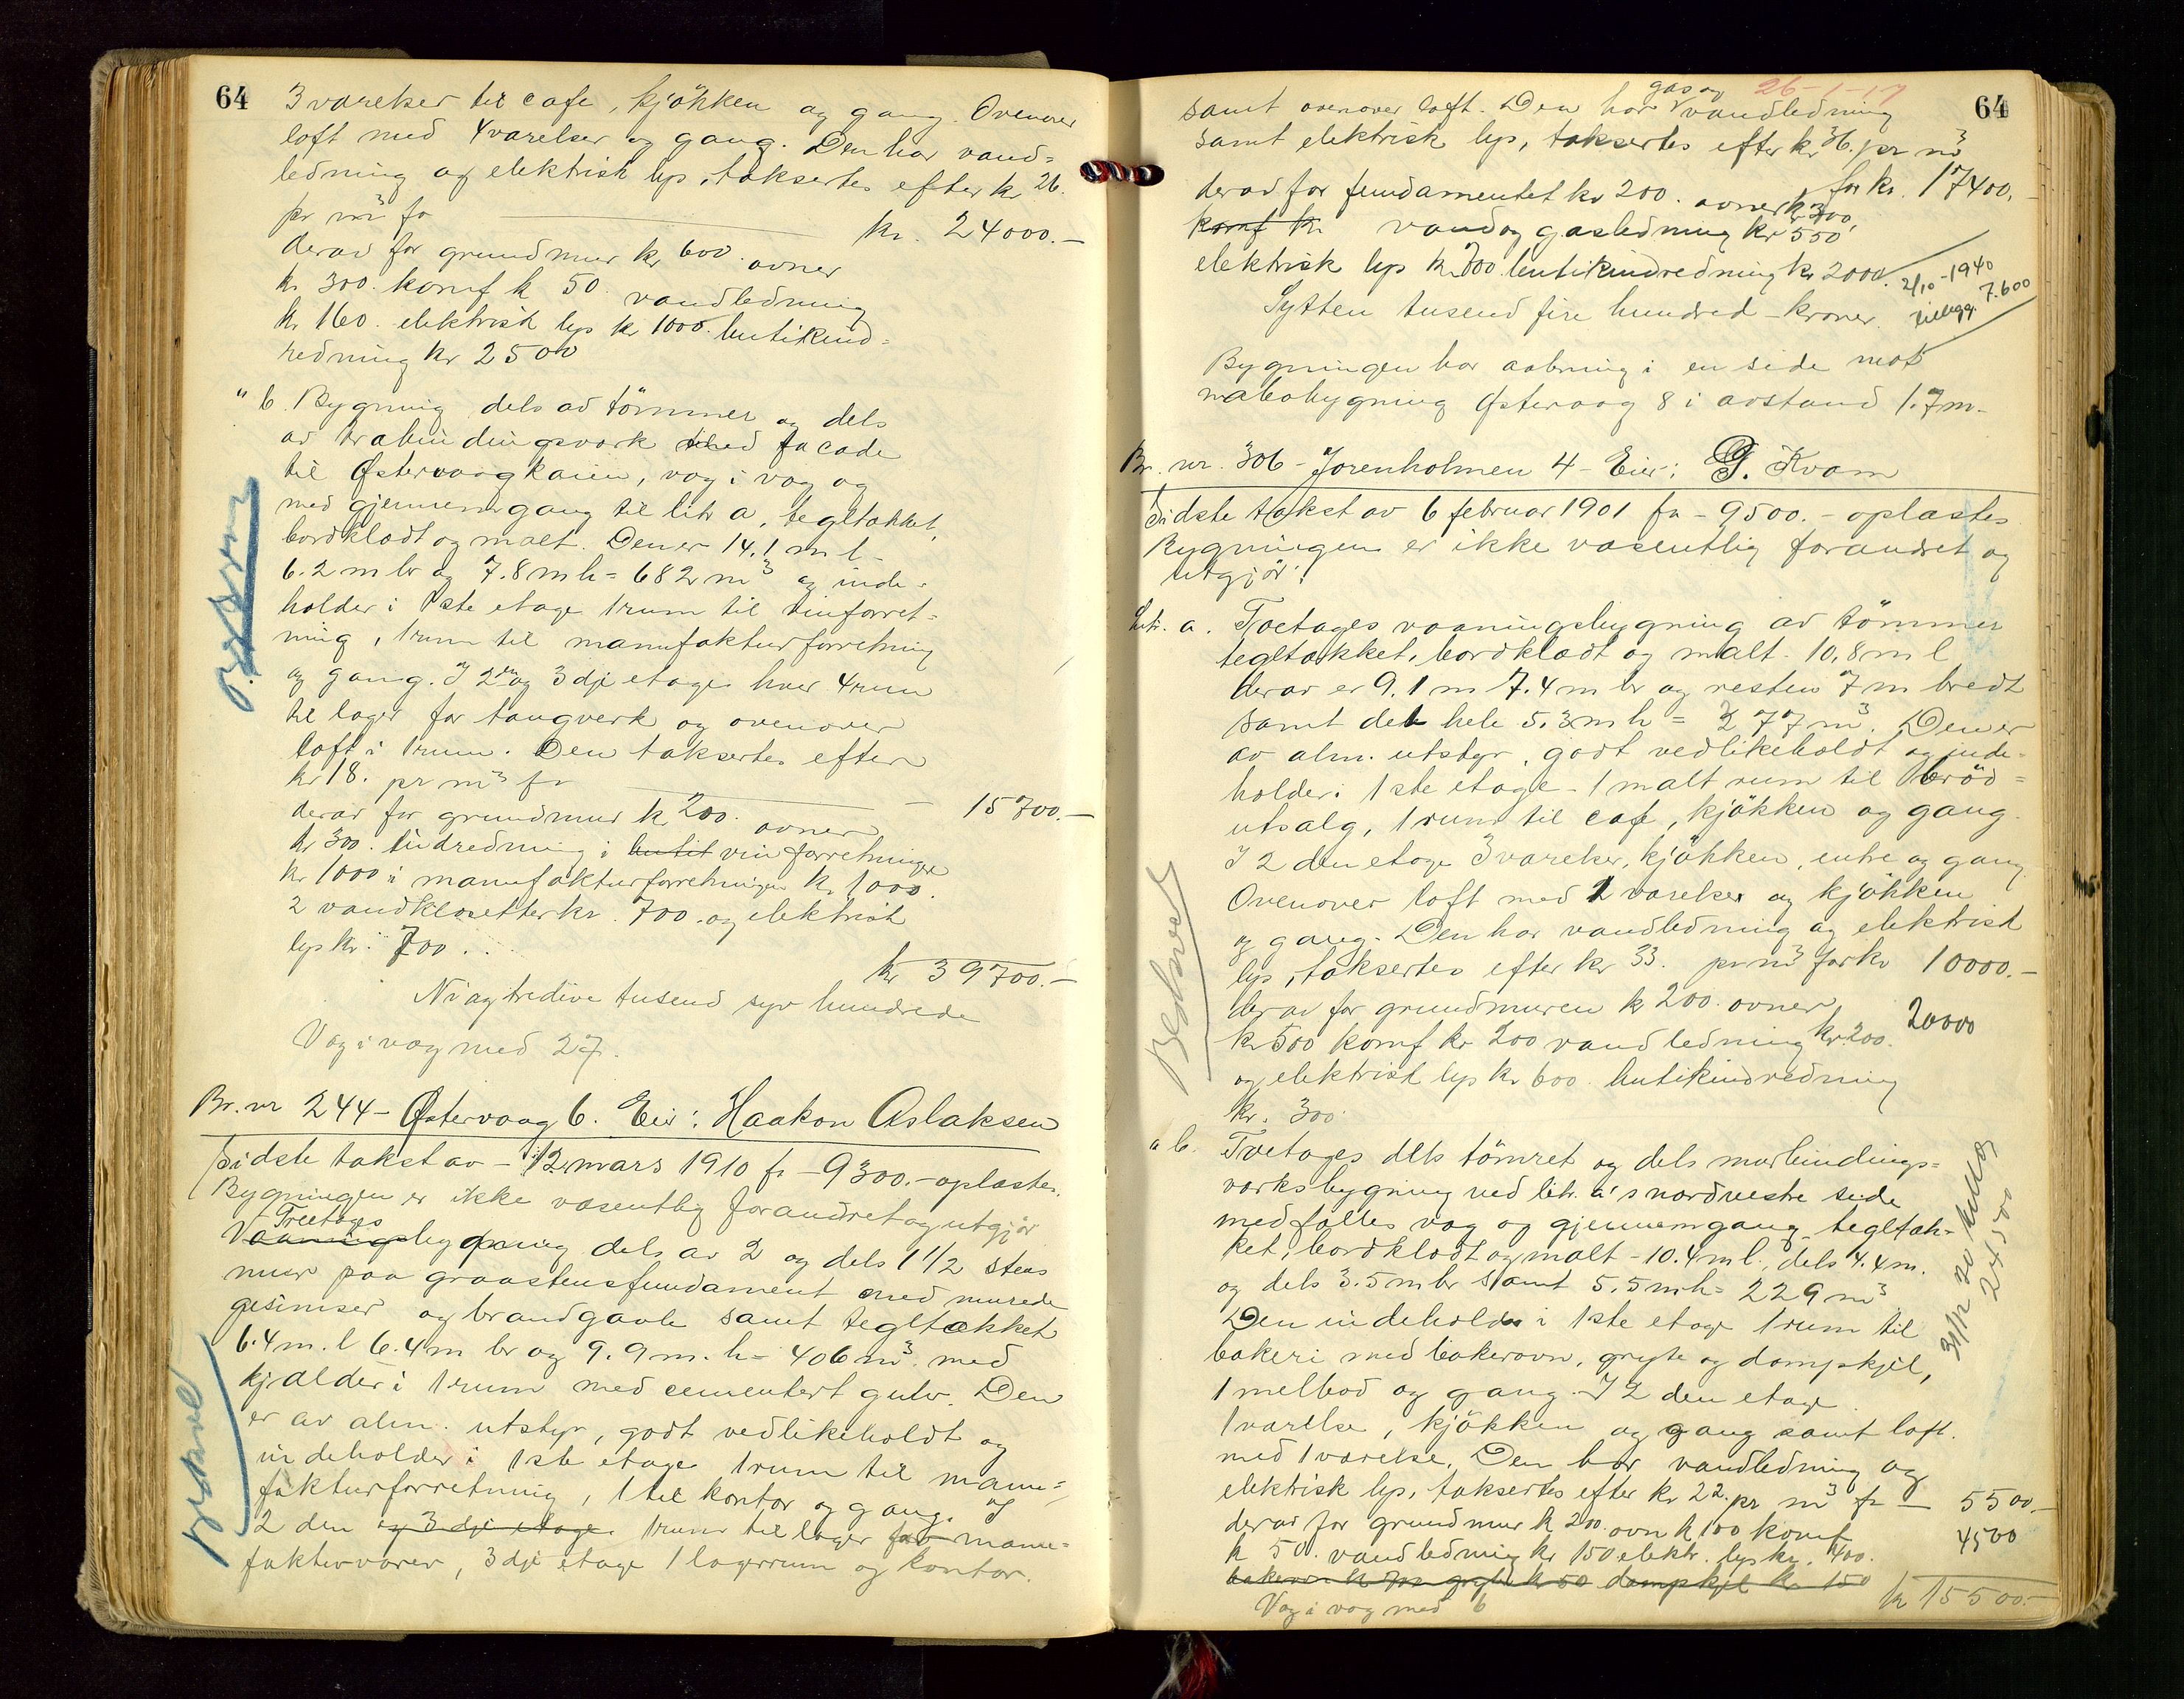 64
3 værelser til cafe, kjøkken og gang. Ovenover
loft med 4 værelser og gang. Den har vand=
ledning og elektrisk lys, taksertes efter kr 26.
pr m³ fr kr. 24000.-
derav for grundmur kr 600. ovner
kr 300. komf k 50. vandledning
kr 160. elektrisk lys kr 1000. butikind=
redning kr 2500
" b. Bygning dels av tömmer og dels
av utmurbindingsverk med facade
til Østervaagkaien, væg i væg og
med gjennemgang til litr a, tegltækket,
bordklædt og malt. Den er 14.1 m l
6.2 m br og 7.8 m h = 682 m³ og inde-
holder i 1ste etage 1 rum til vinforret=
ning, 1 rum til manufakturforretning
og gang. I 2den og 3dje etage hver 4 rum
til lager for taugverk og ovenover
loft i 1 rum. Den taksertes efter
kr 18. pr m³ fr - 15700.-
derav for grundmur kr 200. ovner
kr 300. Indredning i butik vinforretningen
kr 1000 i manufakturforretningen kr 1000.
2 vandklosetter kr. 700. og elektrisk
lys kr. 700.
kr 39700.-
Ni og tredive tusend syv hundrede
Væg i væg med 27.
Br. nr 244 - Østervaag 6. Eier: Haakon Aslaksen
Sidste takst av - 12 mars 1910 fr - 9300.- oplæstes.
Bygningen er ikke væsentlig forandret og utgjør
Treetages
Vaaningsbygning dels av 2 og dels 1 1/2 stens
mur paa graastensfundament med murede
gesimser og brandgavle samt tegltækket
6.4 m. l 6.4 m br og 9.9 m. h = 406 m³ med
kjælder i 1 rum med cementert gulv. Den
er av alm. utstyr, godt vedlikeholdt og
indeholder i 1ste etage 1 rum til manu=
fakturforretning, 1 til kontor og gang. I
2 den og 3 dje etage 1 rum til lager for manu=
fakturvarer, 3 dje etage 1 lagerrum og kontor.
Bedsvor
64
26-1-17
gas og
samt ovenover loft. Den har vandledning
samt elektrisk lys, taksertes efter kr 36. pr m³
for kr. 17400.-
derav for fundamentet kr 200. ovner kr 300,
komf kr vand og gasledning kr 550
elektrisk lys kr 700. butikindredning kr 2000.
2/10-1940
tillegg 7.600
Sytten tusend fire hundred kroner.
Bygningen har aabning i en side mot
nabobygning Østervaag 8 i avstand 1.7 m.
Br. nr. 306 - Jorenholmen 4 - Eier: G. Kvam
Sidste takst av 6 februar 1901 fr - 9500.- oplæstes
Bygningen er ikke væsentlig forandret og
utgjør:
Litr. a. Toetages vaaningsbygning av tömmer
tegltækket, bordklædt og malt. 10.8 m l
derav er 9.1 m 7.4 m br og resten 7 m bredt
samt det hele 5.3 m h = 377 m³. Den er
av alm. utstyr, godt vedlikeholdt og inde-
holder i 1ste etage - 1 malt rum til bröd=
utsalg, 1 rum til cafe, kjøkken og gang.
I 2 den etage 3 værelser, kjøkken, entre og gang
Ovenover loft med 2 værelser og kjøkken
og gang. Den har vandledning og elektrisk
lys, taksertes efter kr 33. pr m³ for kr 10000.-
derav for grundmuren kr 200. ovner 20000
kr 500 komf kr 200 vandledning kr 200.
og elektrisk lys kr 600. butikindredning
kr. 300.
" b. Toetages dels tömret og dels murbindings=
verksbygning ved litr. a's nordvestre side
med fælles væg og gjennemgang tegltæk=
ket, bordklædt og malt - 10.4 m l., dels 4.4 m.
og dels 3.5 m br samt 5.5 m h = 229 m³
Den indeholder i 1ste etage 1 rum til
bakeri med bakerovn, gryte og dampkjel,
1 melbod og gang. I 2 den etage
1 værelse, kjøkken og gang samt loft
med 1 værelse. Den har vandledning og
elektrisk lys, taksertes efter kr 22. pr m³ fr - 5500.-
derav for grundmur k 200. ovn k 100 komf 4500
k 50. vandledning kr 150 elektr. lys kr. 400.
bakerovn k 700 gryte k 50 dampkjel kr 150
kr 15500.-
Væg i væg med 6
24500